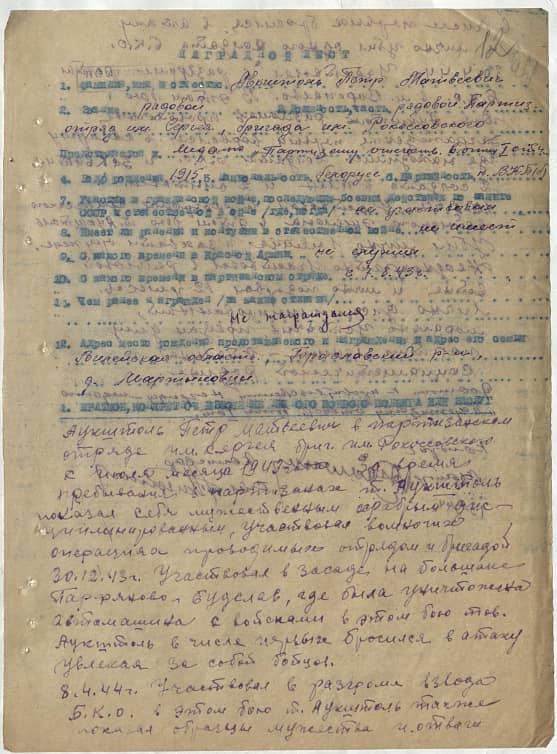 НАГРАДНОЙ ЛИСТ
1. ФАМИЛИЯ, ИМЯ и ОТЧЕСТВО Аукштоль Петр Матвеевич
2. Звание рядовой 3. Должность, часть рядовой Партиз.
отряд им. Сергея, бригада им. Рокоссовского
Представляется к Медали Партизану отечеств. войны I
4. Год рождения 1915 5. Национальность Белорус 6. Партийность
7. Участие в гражданской войне, последующих боевых действиях по защите
СССР и отечественной войне /где, когда/ не участвовал
8. Имеет ли ранения и контузии в отечественной войне не имеет
9. С какого времени в Красной Армии не служил
10. С какого времени в партизанском отряде с 7.8.43 г.
11. Чем ранее награжден /за какие отличия/
не награждался
12. Адрес места жительства представляемого к награждению и адрес его семьи
Вилейская область, р-он,
д.
1. КРАТКОЕ, КОНКРЕТНОЕ ИЗЛОЖЕНИЕ ЛИЧНОГО БОЕВОГО ПОДВИГА ИЛИ ЗАСЛУГ
Аукштоль Петр Матвеевич в партизанском
отряде им. Сергея бриг. им. Рокоссовского
с месяца 1943 За время
пребывания в партизанах т. Аукштоль
показал себя мужественным храбрым дис-
циплинированным, участвовал во многих
операциях проводимых отрядом и бригадой
30.12.43 г. Участвовал в засаде на большаке
Парфяново – Будслав, где была уничтожена
автомашина с войсками в этом бою тов.
Аукштоль в числе первых бросился в атаку
увлекая за собой бойцов.
8.4.44 г. Участвовал в разгроме взвода
Б.К.О. в этом бою т. Аукштоль также
показал образцы мужества и отваги